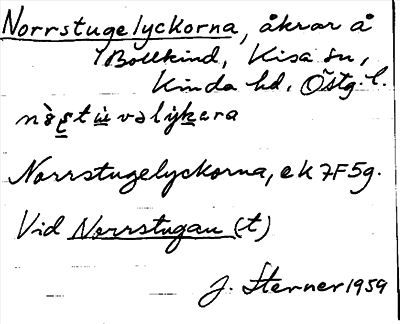 Norrstugelyckorna, åkrar å
Bollkind, Kisa sn,
Kinda hd. Östg. l.
Norrstugelyckorna, ek 7F5g.
Vid Norrstugan (t)
J. Sterner 1959